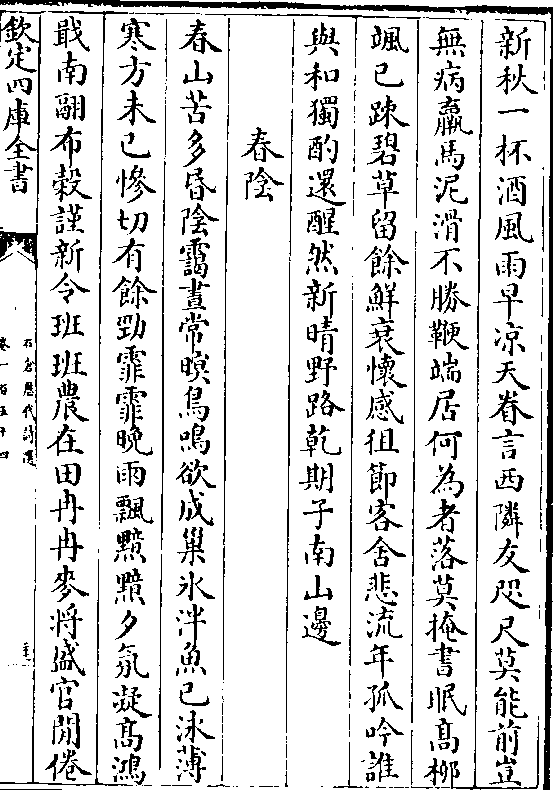 新秋一杯酒風雨早凉天眷言西隣友咫尺莫能前豈
無病羸馬泥滑不勝鞭端居何為者落莫掩書眠髙柳
颯已踈碧草留餘鮮衰懷感徂節客舍悲流年孤吟誰
與和獨酌還醒然新晴野路乾期子南山邊
春隂
春山苦多昬隂靄晝常暝鳥鳴欲成巢氷泮魚已泳薄
寒方未已慘切有餘勁霏霏晚雨飄黯黯夕氛凝髙鴻
戢南翮布穀謹新令班班農在田冉冉麥将盛官閒倦
欽定四庫全書
石倉歴代詩選
卷一百五十四